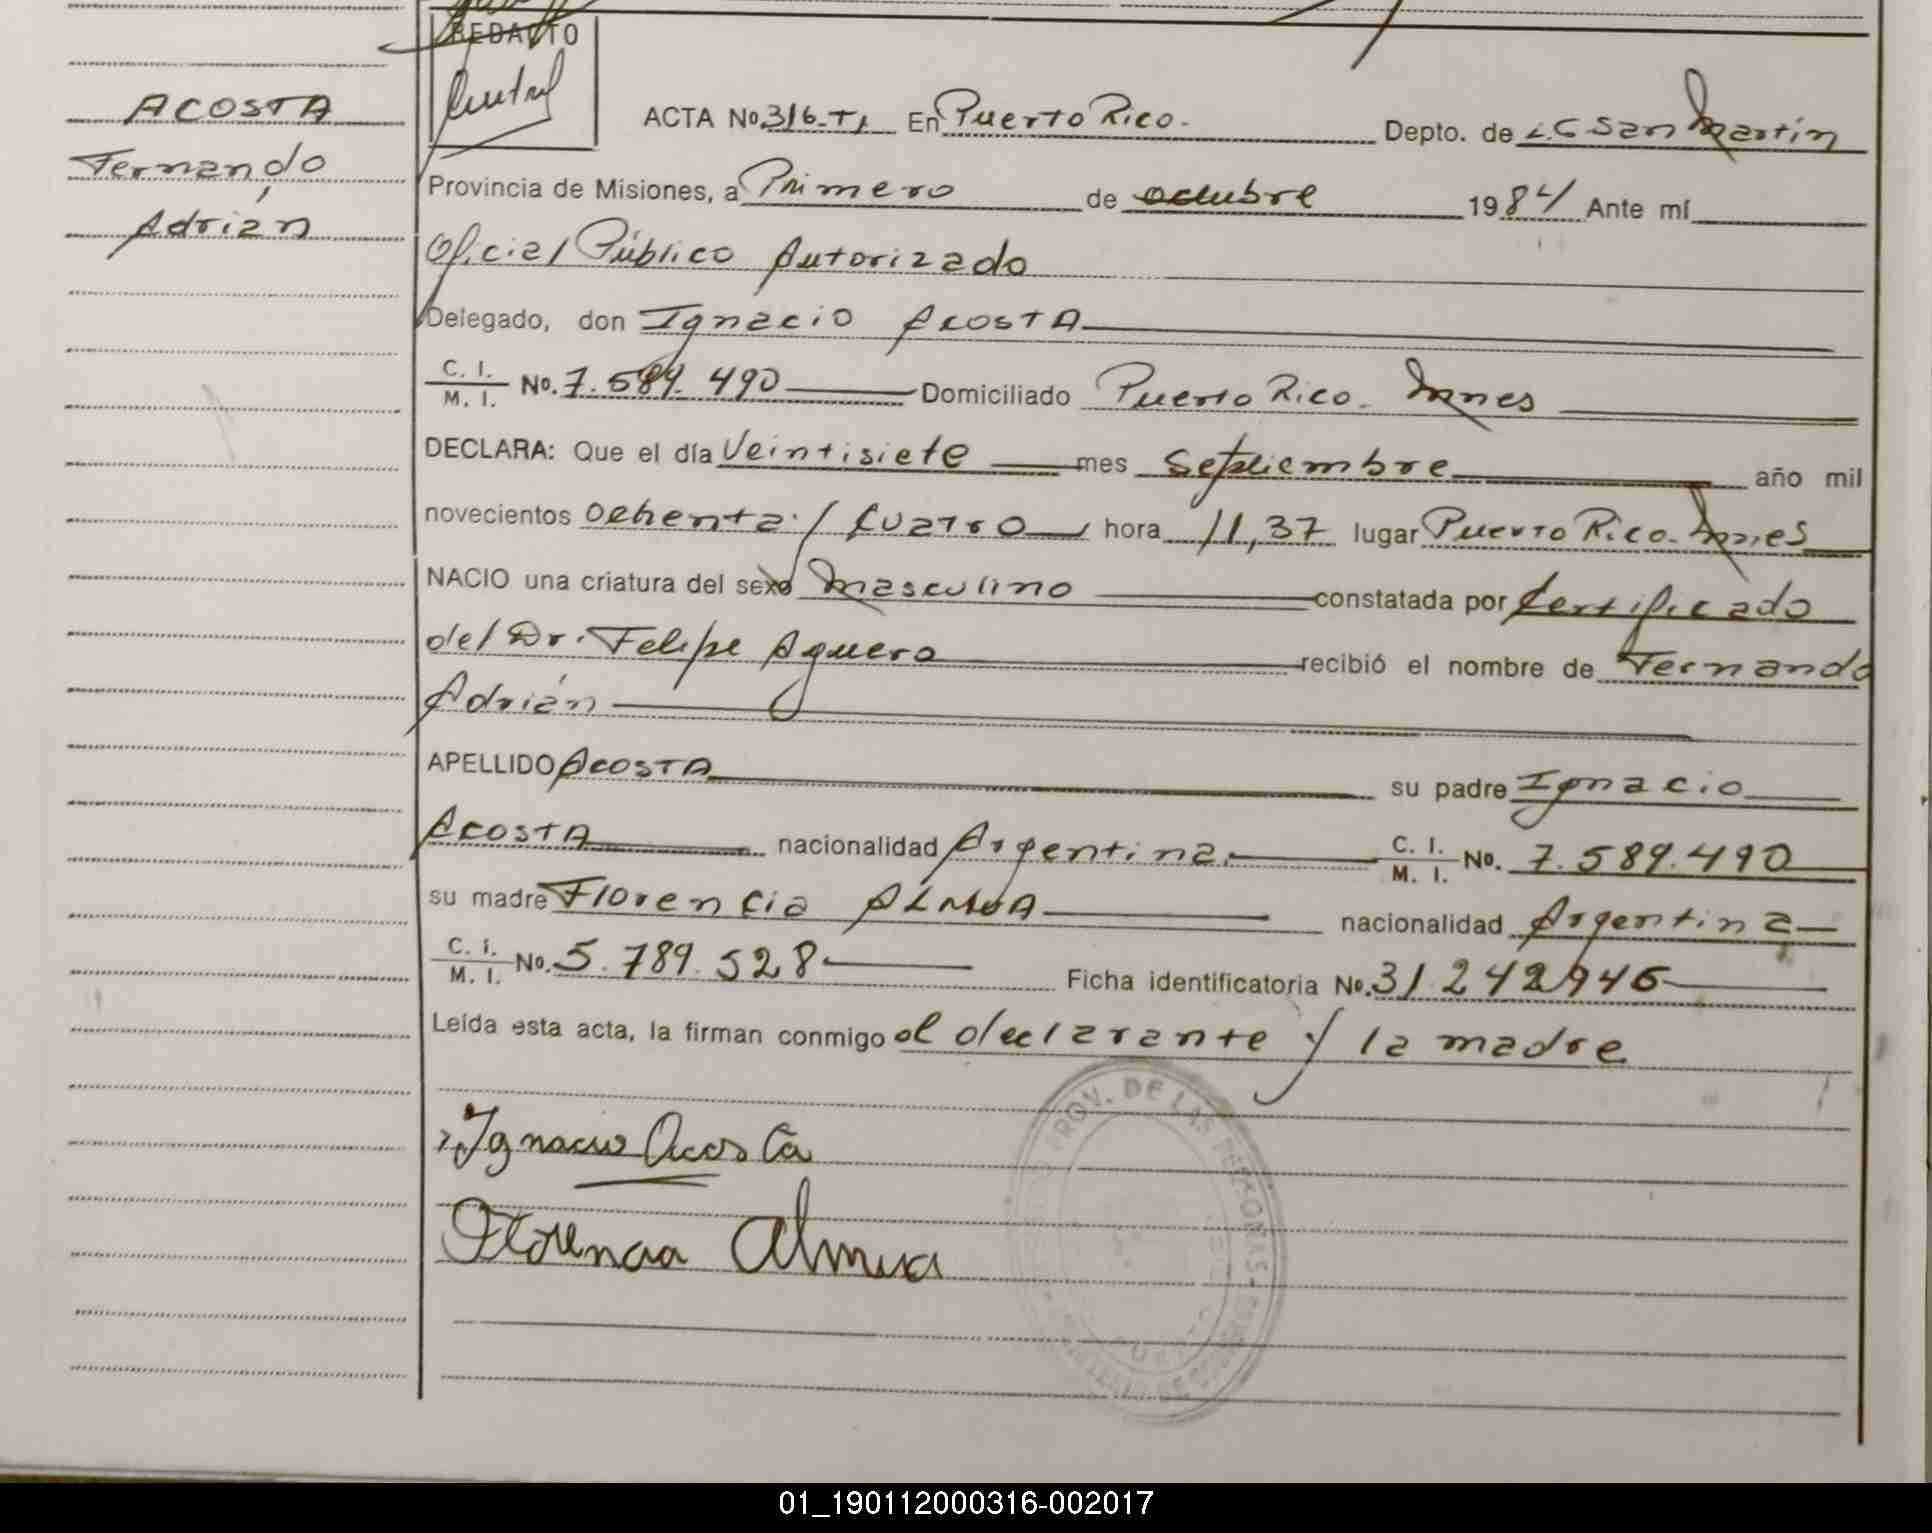 REDACTO
ACOSTA
Fernando
Adrián
ACTA No. 316-T1 En Puerto Rico. Depto. de L.G San Martín
Provincia de Misiones, a Primero de octubre 1984 Ante mí
Oficial Público Autorizado
Delegado, don Ignacio Acosta
C. I. / M. I. No. 7.589.490 Domiciliado Puerto Rico. Mnes
DECLARA: Que el día Veintisiete mes Septiembre año mil
novecientos ochenta y cuatro hora 11,37 lugar Puerto Rico. Mnes
NACIO una criatura del sexo Masculino constatada por Certificado
del Dr. Felipe Aguero recibió el nombre de Fernando
Adrián
APELLIDO Acosta su padre Ignacio
Acosta nacionalidad Argentina. C. I. / M. I. No. 7.589.490
su madre Florencia ALMUA nacionalidad Argentina
C. I. / M. I. No. 5.789.528 Ficha identificatoria No. 31.242946
Leída esta acta, la firman conmigo el declarante y la madre
Ignacio Acosta
Florencia Almua
PROV. DE LAS PERSONAS
01_190112000316-002017